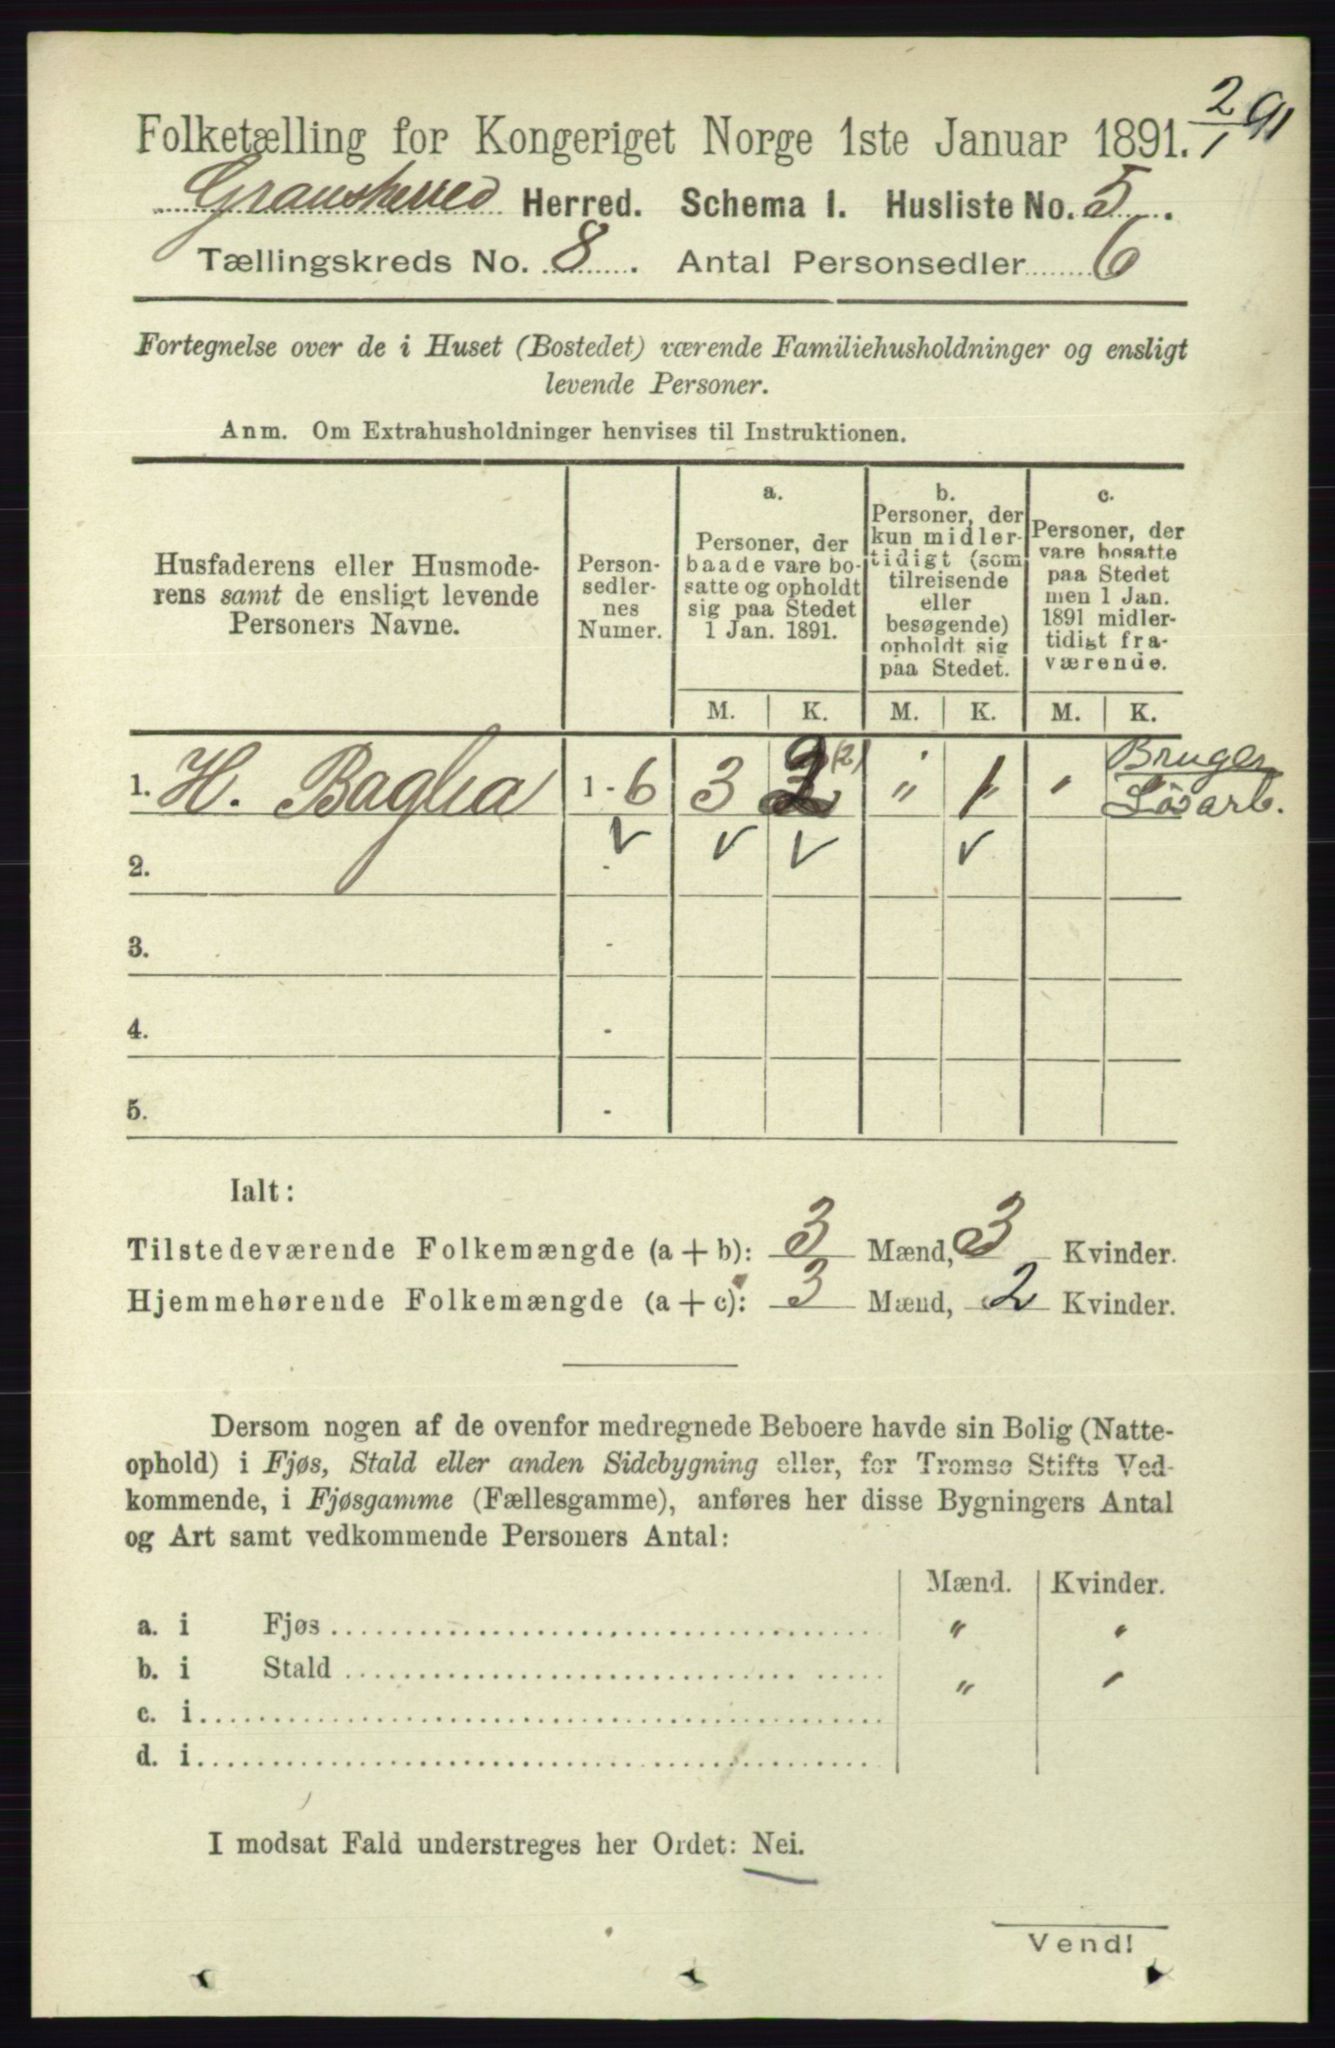 2/1 91
Folketælling for Kongeriget Norge 1ste Januar 1891.
Gransherred Herred. Schema 1. Husliste No. 5.
Tællingskreds No. 8. Antal Personsedler 6
Fortegnelse over de i Huset (Bostedet) værende Familiehusholdninger og ensligt
levende Personer.
Anm. Om Extrahusholdninger henvises til Instruktionen.
Husfaderens eller Husmode-
rens samt de ensligt levende
Personers Navne.
Person-
sedler-
nes
Numer.
a.
Personer, der
baade vare bo-
satte og opholdt
sig paa Stedet
1 Jan. 1891.
b.
Personer, der
kun midler-
tidigt (som
tilreisende
eller
besøgende)
opholdt sig
paa Stedet.
c.
Personer, der
vare bosatte
paa Stedet
men 1 Jan.
1891 midler-
tidigt fra-
værende.
M. K. M. K. M. K.
1. H. Baglia 1 - 6 3 2 (2) " 1 " Bruger
2. -
3. -
4. -
5. -
Ialt:
Tilstedeværende Folkemængde (a + b): 3 Mænd, 3 Kvinder.
Hjemmehørende Folkemængde (a + c): 3 Mænd, 2 Kvinder.
Dersom nogen af de ovenfor medregnede Beboere havde sin Bolig (Natte-
ophold) i Fjøs, Stald eller anden Sidebygning eller, for Tromsø Stifts Ved-
kommende, i Fjøsgamme (Fællesgamme), anføres her disse Bygningers Antal
og Art samt vedkommende Personers Antal:
Mænd. Kvinder.
a. i Fjøs " "
b. i Stald " "
c. i
d. i
I modsat Fald understreges her Ordet: Nei.
Vend!